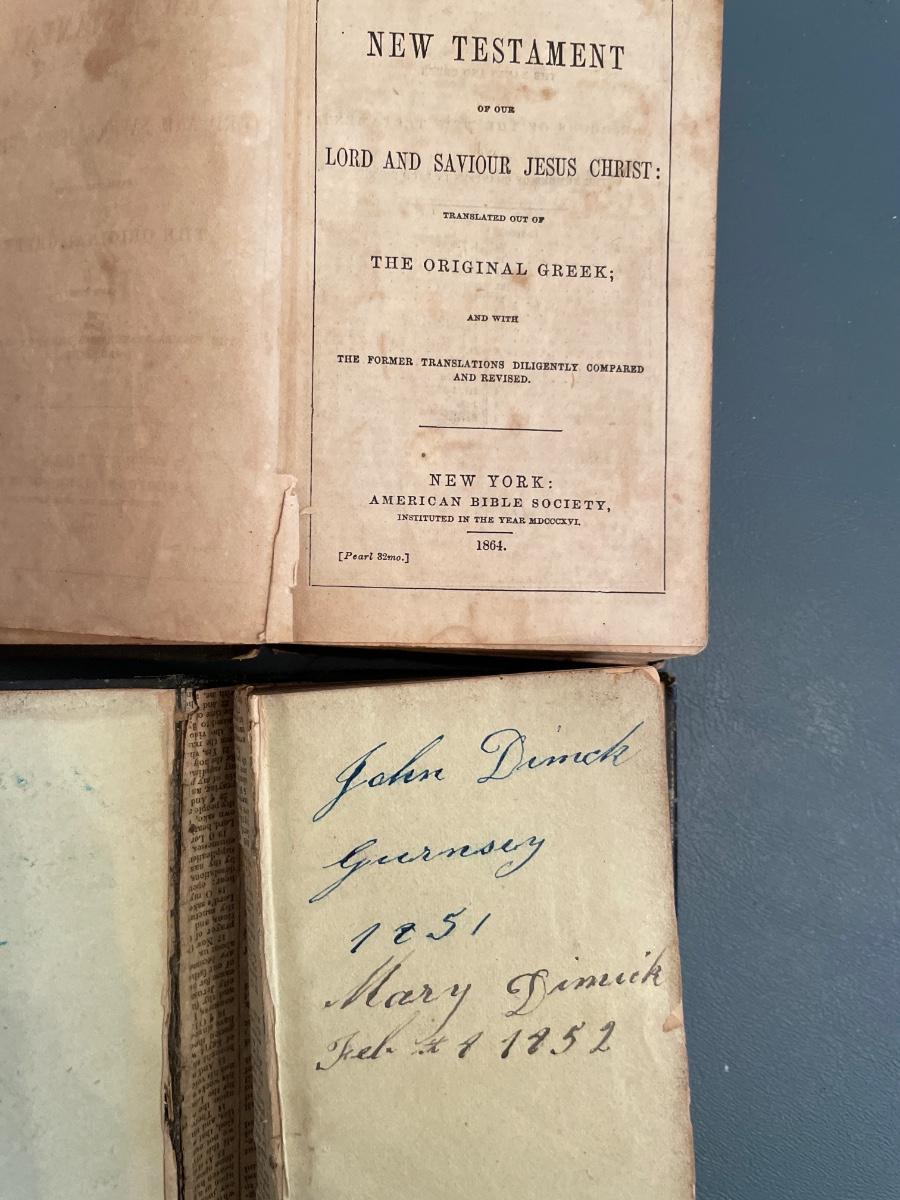 NEW TESTAMENT
OF OUR
LORD AND SAVIOUR JESUS CHRIST:
TRANSLATED OUT OF
THE ORIGINAL GREEK;
AND WITH
THE FORMER TRANSLATIONS DILIGENTLY COMPARED
AND REVISED.
NEW YORK:
AMERICAN BIBLE SOCIETY,
INSTITUTED IN THE YEAR MDCCCXVI.
1864.
[Pearl 32mo.]
John Dimck
Gurnsey
1851
Mary Dimick
Feb 1852